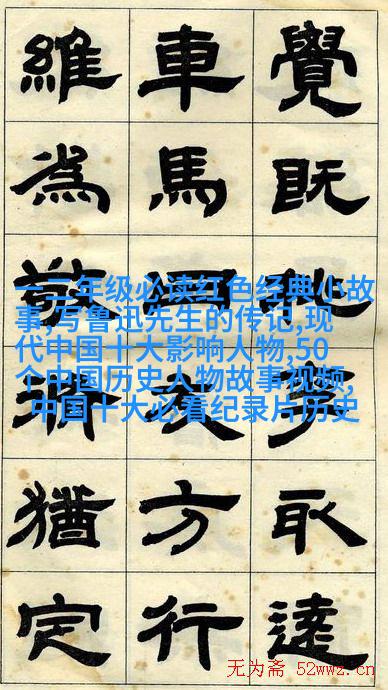 覺既達
車馬衣方行
維為敬將猶定
一二年级必读红色经典小故
事,写鲁迅先生的传记,现
代中国十大影响人物,50
个中国历史人物故事视频,
中国十大必看纪录片历史
无为斋 52wwz.cn